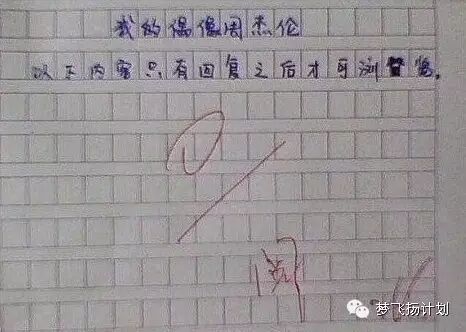 我的偶像周杰伦
以下内容只有回复之后才可浏览。
梦飞扬计划